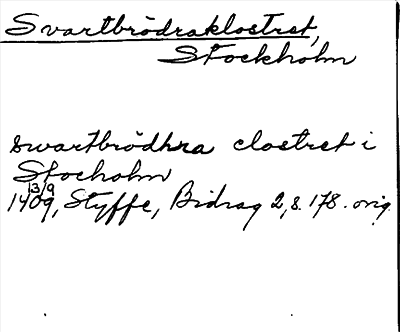 Svartbrödraklostret,
Stockholm
swartbrödhra clostret i
Stocholm
1409 13/9, Styffe, Bidrag 2, s. 178. orig.